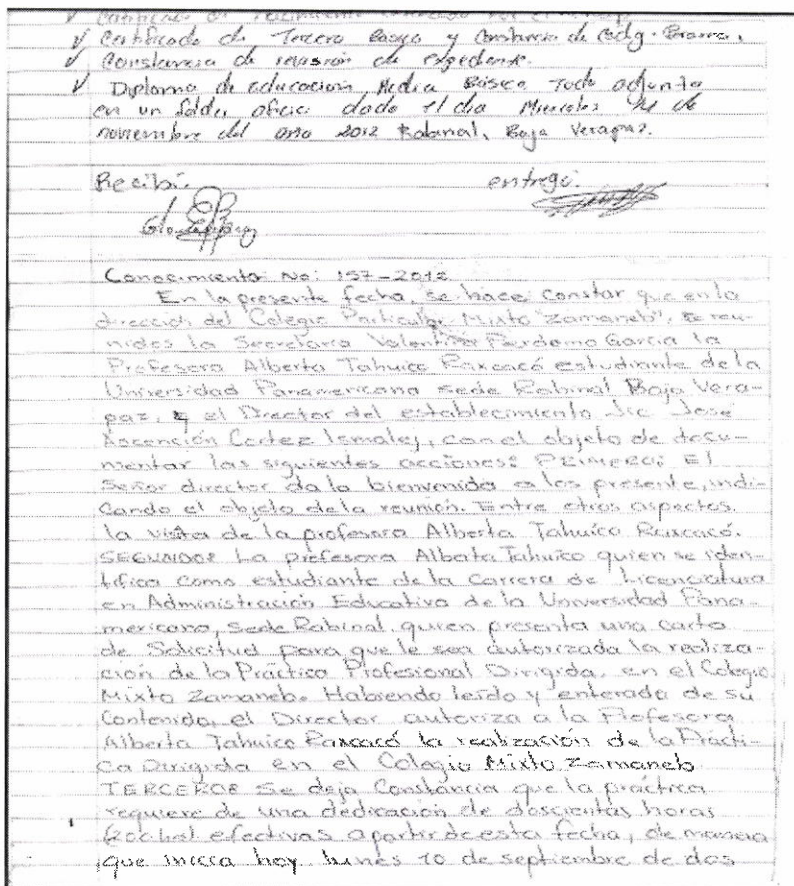 √ Certificado de nacimiento
√ Certificado de Tercero Básico y Constancia de
√ Constancia de revisión de expediente.
√ Diploma de educación Media Básico Todo adjunto
en un folder oficio dado el día Miercoles 21 de
noviembre del año 2012 Rabinal, Baja Verapaz.
Recibí.
entregó.
Conocimiento No: 157-2012
En la presente fecha, se hace constar que en la
dirección del Colegio Particular Mixto "Zamaneb", reu-
nidos la Secretaria Perdomo García la
Profesora Alberta Tahuico Raxcacó estudiante de la
Universidad Panamericana sede Rabinal Baja Vera-
paz, y el Director del establecimiento José
Ascención Cortez Ismalej, con el objeto de docu-
mentar las siguientes acciones: PRIMERO: El
Señor director da la bienvenida a los presente, indi-
cando el objeto de la reunión. Entre otros aspectos
la visita de la profesora Alberta Tahuico Raxcacó.
SEGUNDO: La profesora Alberta Tahuico quien se iden-
tifica como estudiante de la Carrera de Licenciatura
en Administración Educativa de la Universidad Pana-
mericana, Sede Rabinal, quien presenta una carta
de Solicitud para que le sea autorizada la realiza-
ción de la Práctica Profesional Dirigida, en el Colegio
Mixto Zamaneb. Habiendo leído y enterado de su
Contenido, el Director autoriza a la Profesora
Alberta Tahuico Raxcacó la realización de la Prácti-
ca Dirigida en el Colegio Mixto Zamaneb
TERCERO: Se deja Constancia que la práctica
requiere de una dedicación de doscientas horas
efectivas a partir de esta fecha, de manera
que inicia hoy lunes 10 de septiembre de dos